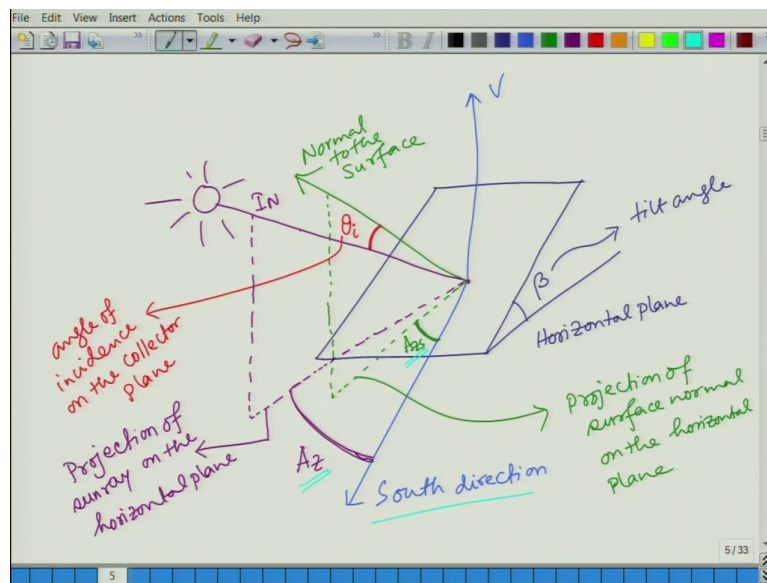 File Edit View Insert Actions Tools Help
B I
V
Normal
to the
Surface
IN
θi
tilt angle
β
Horizontal plane
angle of
incidence
on the collector
plane
Azs
Projection of
sunray on the
horizontal plane
Az
South direction
Projection of
surface normal
on the horizontal
plane
5/33
5